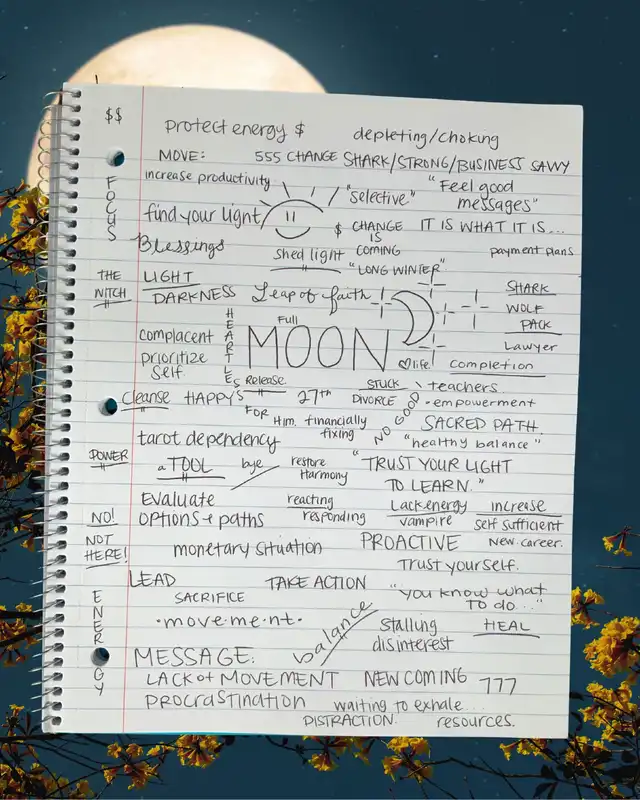 $$
protect energy $
depleting/choking
MOVE: 555 CHANGE SHARK/STRONG/BUSINESS SAVVY
FOCUS
increase productivity
"selective"
"Feel good
messages"
find your light
$ CHANGE
IS
COMING
IT IS WHAT IT IS...
Blessings
shed light
payment plans
"LONG WINTER"
THE
NITCH
LIGHT
DARKNESS
Leap of faith
SHARK
WOLF
PACK
HEARTLESS
Full
MOON
Lawyer
complacent
prioritize
self.
Release.
♡life!
completion
cleanse
HAPPY'S
27th
STUCK
DIVORCE
teachers
• empowerment
FOR
Him.
financially
fixing
NO GOOD
SACRED PATH.
"healthy balance"
tarot dependency
POWER
a TOOL
bye
restore
Harmony
"TRUST YOUR LIGHT
TO LEARN."
Evaluate
options + paths
reacting
responding
Lack energy
vampire
increase
self sufficient
NO!
NOT
HERE!
monetary situation
PROACTIVE
New career.
Trust yourself.
LEAD
TAKE ACTION
"you know what
TO do..."
SACRIFICE
ENERGY
•mov•e•m•e•n•t•
balance
stalling
disinterest
HEAL
MESSAGE:
LACK of MOVEMENT
NEW COMING
777
procrastination
waiting to exhale...
DISTRACTION.
resources.